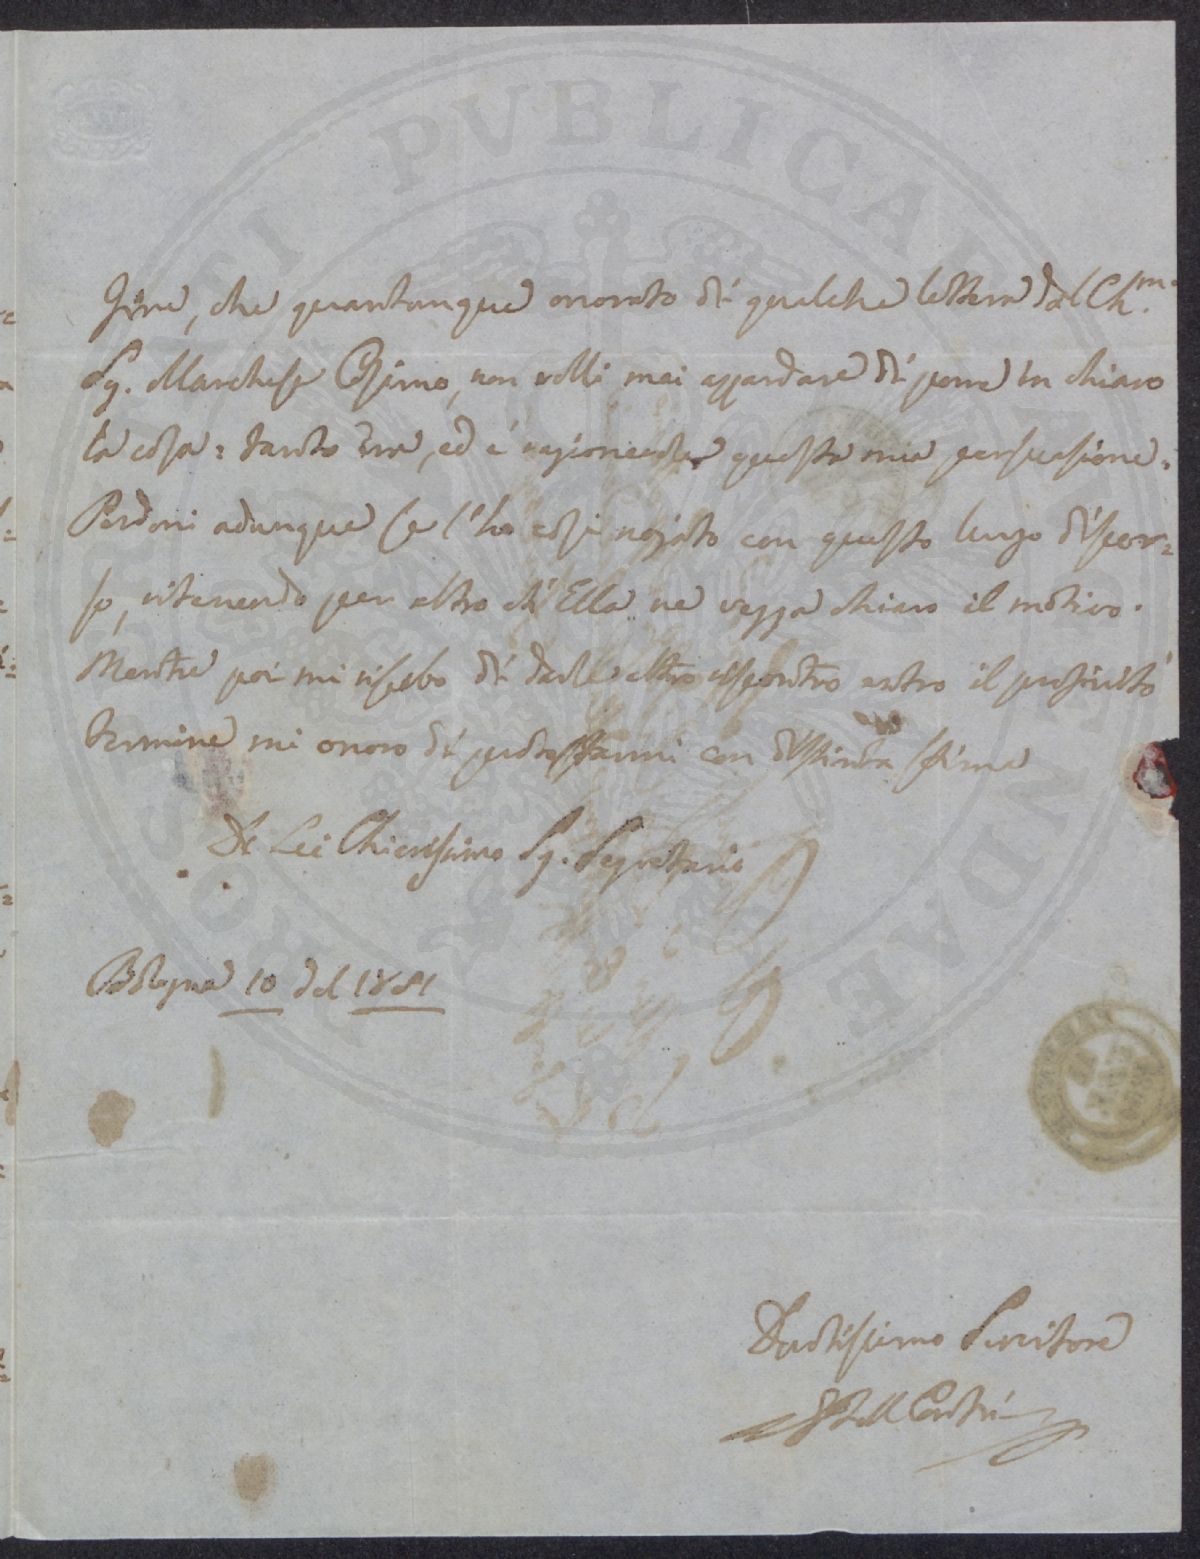 gine, che quantunque onorato di qualche lettera dal Ch.^mo
Sg. Marchese Cosimo, non volli mai azzardare di porre in chiaro
la cosa: tanto era, ed è ragionevole questa mia persuasione.
Perdoni adunque se l'ho così nojato con questo lungo discor=
so, ritenendo per altro ch'Ella ne vegga chiaro il motivo.
Mentre poi mi riserbo di darle altro riscontro entro il prefinito
termine mi onoro di protestarmi con distinta stima
Di Lei Chiarissimo Sg. Segretario
Bologna 10 del 1841
Devotissimo Servitore
PROSPERITATI PVBLICAE AVGENDAE